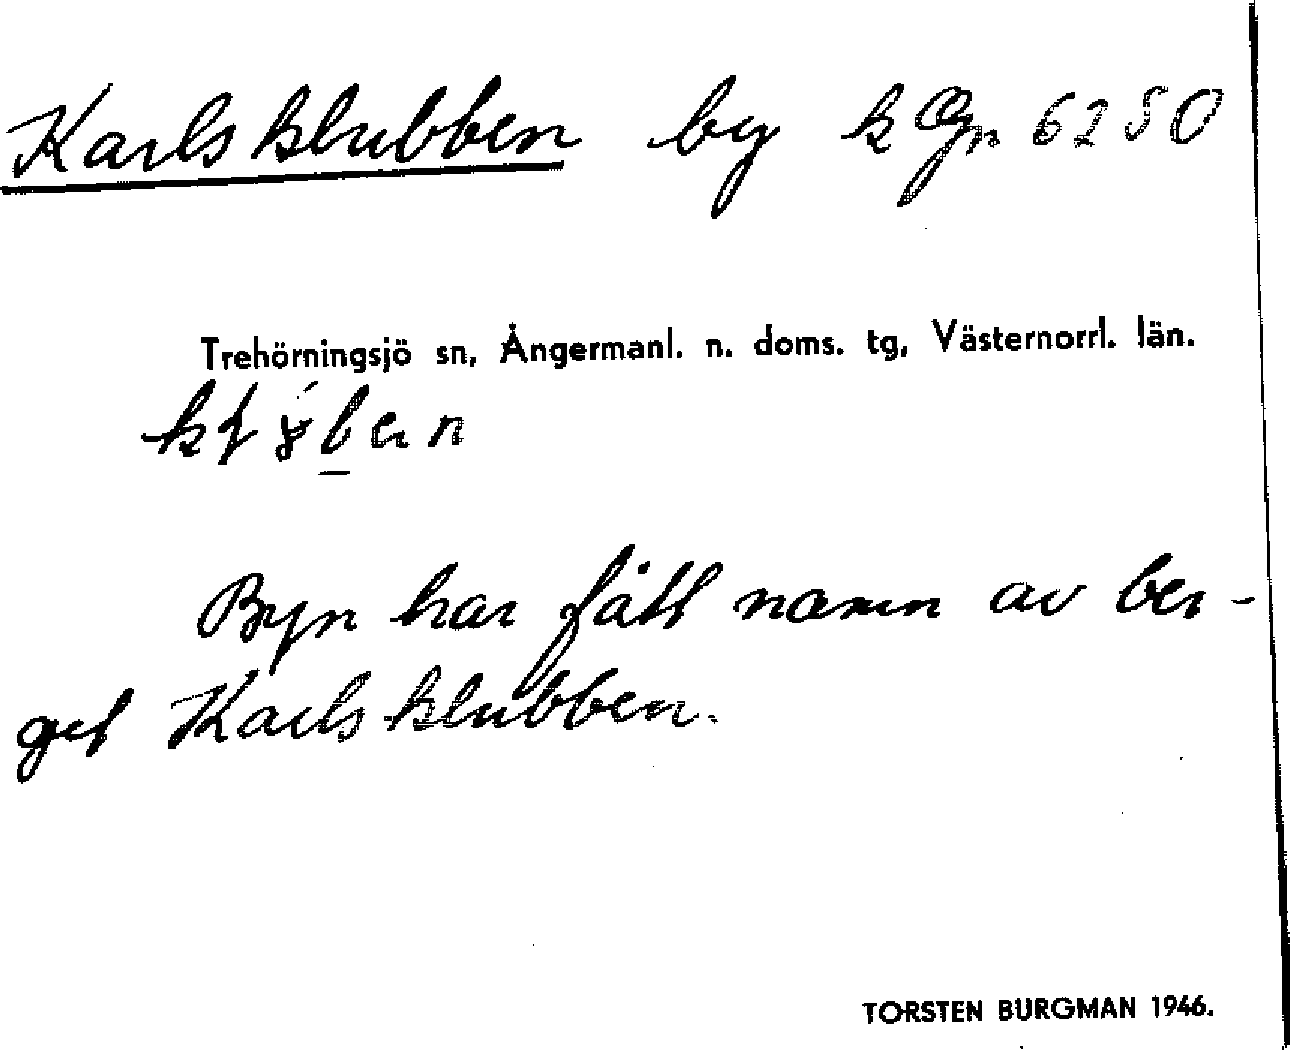 Karlsklubben by k Gn 6250
Trehörningsjö sn, Ångermanl. n. doms. tg, Västernorrl. län.
Byn har fått namn av ber-
get Karlsklubben.
TORSTEN BURGMAN 1946.